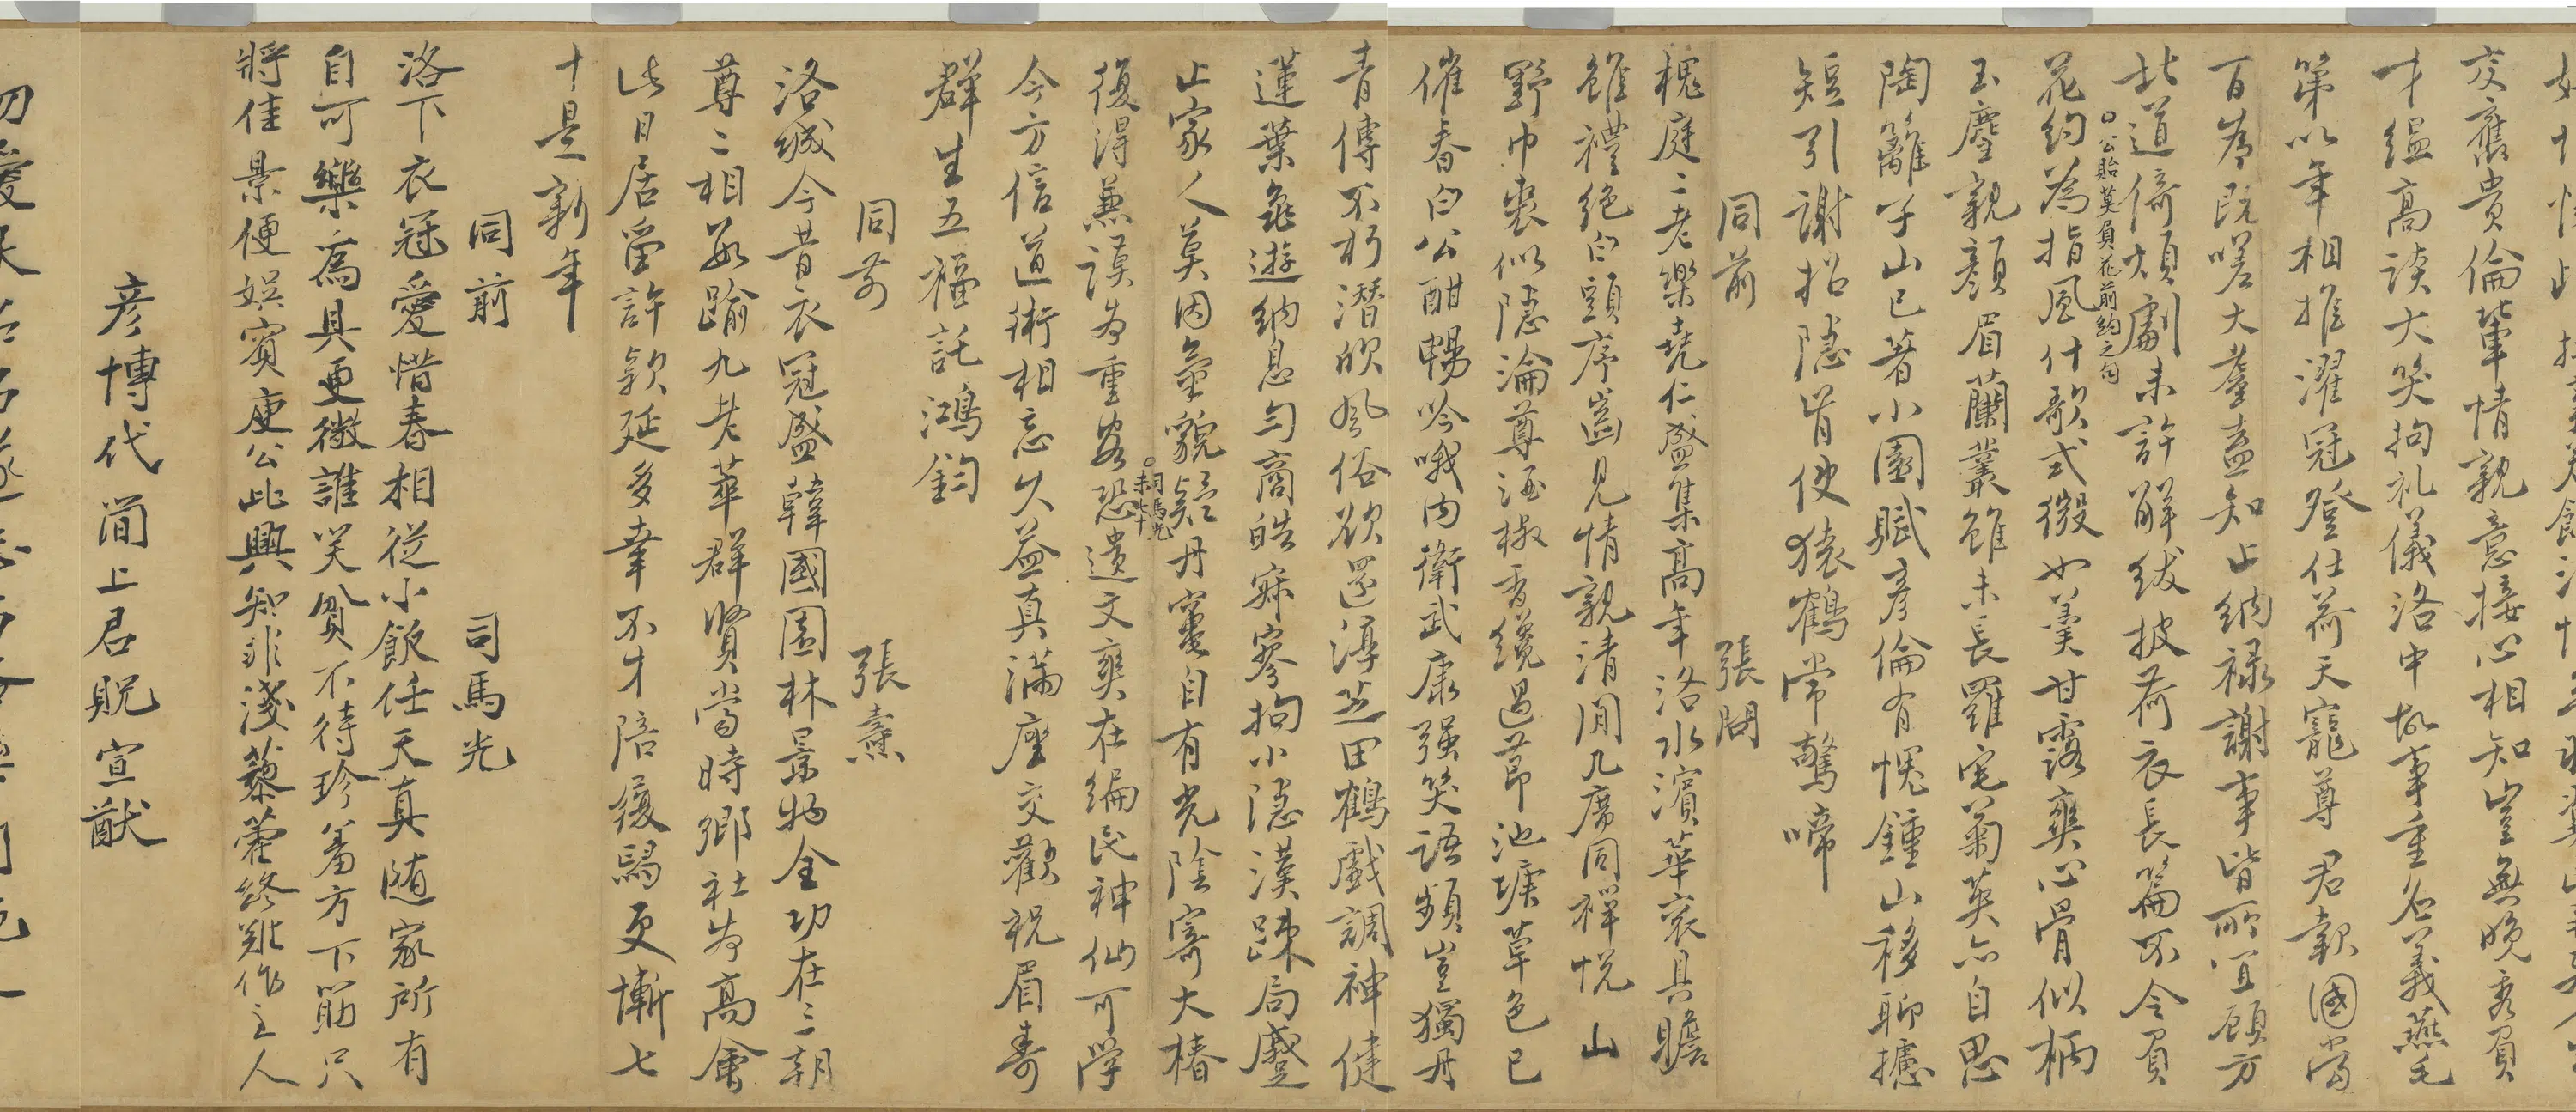 交舊貴倫輩情親意接心相知豈無晚秀負
才縕高談大笑拘礼儀洛中故事重名義燕毛
第以年相推濯冠登仕荷天寵尊君報國當
百為既嗟大耋盍知止納祿謝事皆所宜顧方
此道倚煩劇未許解紱披荷衣長篇不令負
公貽莫負花前約之句
花約為指風什歌式微如羹甘露爽心骨似柄
玉麈親顏眉蘭叢雖未長羅宅菊英亦自思
陶籬子山已著小園賦彥倫有愧鍾山移聊攄
短引謝招隱肯使猿鶴常驚啼
同前 張問
槐庭二老樂堯仁盛集高年洛水濱華袞具瞻
雖禮絕白頭序齒見情親清閒几席同禪悅山
野巾裘似隱淪尊酒椒香纔過節池塘草色已
催春白公酣暢吟哦內衛武康強笑語頻豈獨丹
青傳不朽潛欣風俗欲還淳芝田鶴戲調神健
蓮葉龜遊納息勻商皓寂寥拘小隱漢疎局蹙
止家人莫因氣貌疑丹竈自有光陰寄大椿
司馬光未七十
復得兼謨為重客恐遺文爽在編民神仙可學
今方信道術相忘久益真滿座交歡祝眉壽
群生五福託鴻鈞
同前 張燾
洛城今昔衣冠盛韓國園林景物全功在三朝
尊二相數踰九老萃群賢當時鄉社為高會
此日居留許款延多幸不才陪履舄更慚七
十是新年
同前 司馬光
洛下衣冠愛惜春相從小飲任天真隨家所有
自可樂為具更微誰笑貧不待珍羞方下筯只
將佳景便娛賓庾公此興知非淺藜藿終難作主人
彥博代簡上君貺宣猷